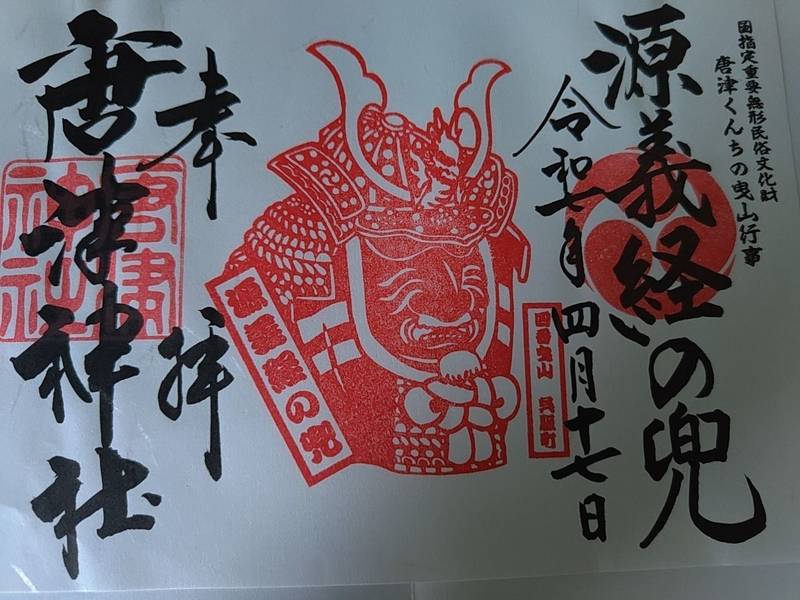 国指定重要無形民俗文化財
唐津くんちの曳山行事
源義経の兜
令和七年四月十七日
四番曳山 呉服町
源義経の兜
奉拝
唐津神社
唐津
神社